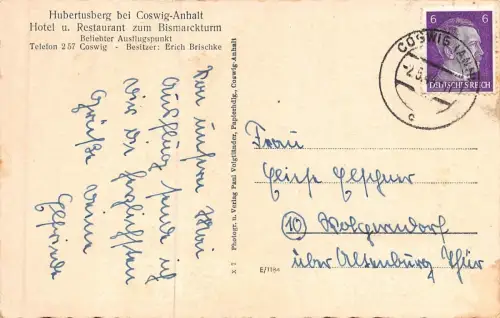 Hubertusberg bei Coswig-Anhalt
Hotel u. Restaurant zum Bismarckturm
Beliebter Ausflugspunkt
Telefon 257 Coswig - Besitzer: Erich Brischke
Von unserm
Ausflug sende ich
Dir die herzlichsten
Grüße Deine
Photogr. u. Verlag Paul Voigtländer, Papierhdlg., Coswig-Anhalt
X 7
E/1194
6 6
DEUTSCHES REICH
COSWIG (ANH
c
Frau
Elise
(10)
über Altenburg Thür